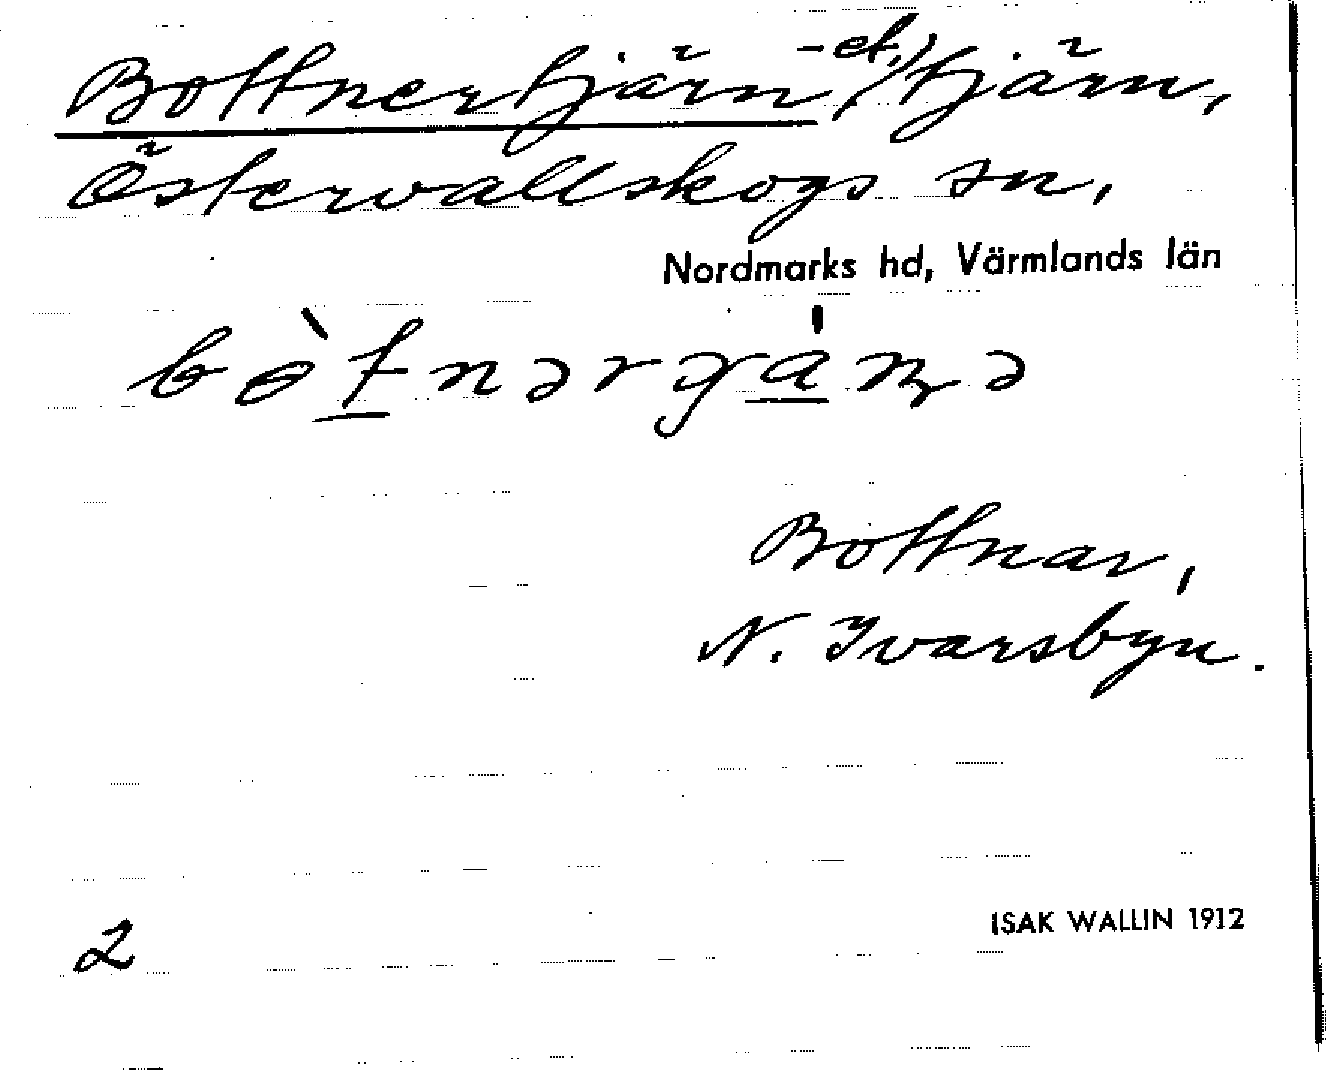 Bottnertjärn, -et, tjärn,
Östervallskogs sn,
Nordmarks hd, Värmlands län
Bottnar,
N. Ivarsbyn.
2 ISAK WALLIN 1912